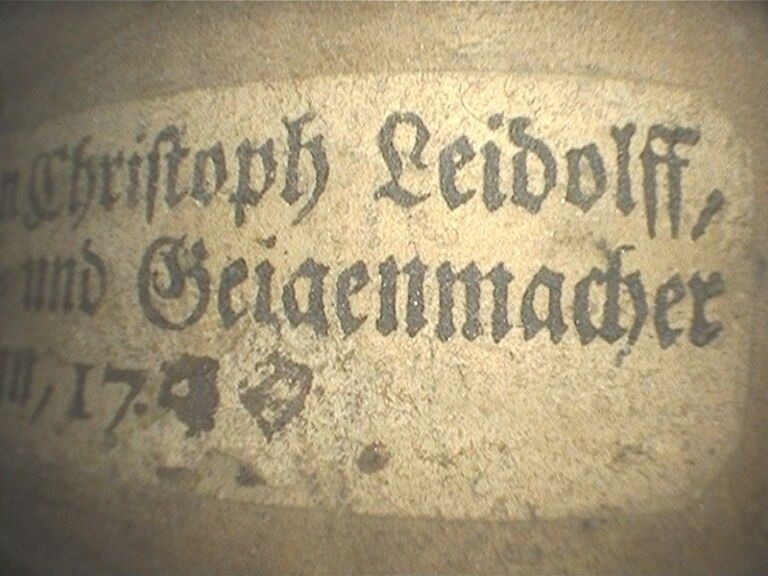 n Christoph Leidolff,
und Geigenmacher
17